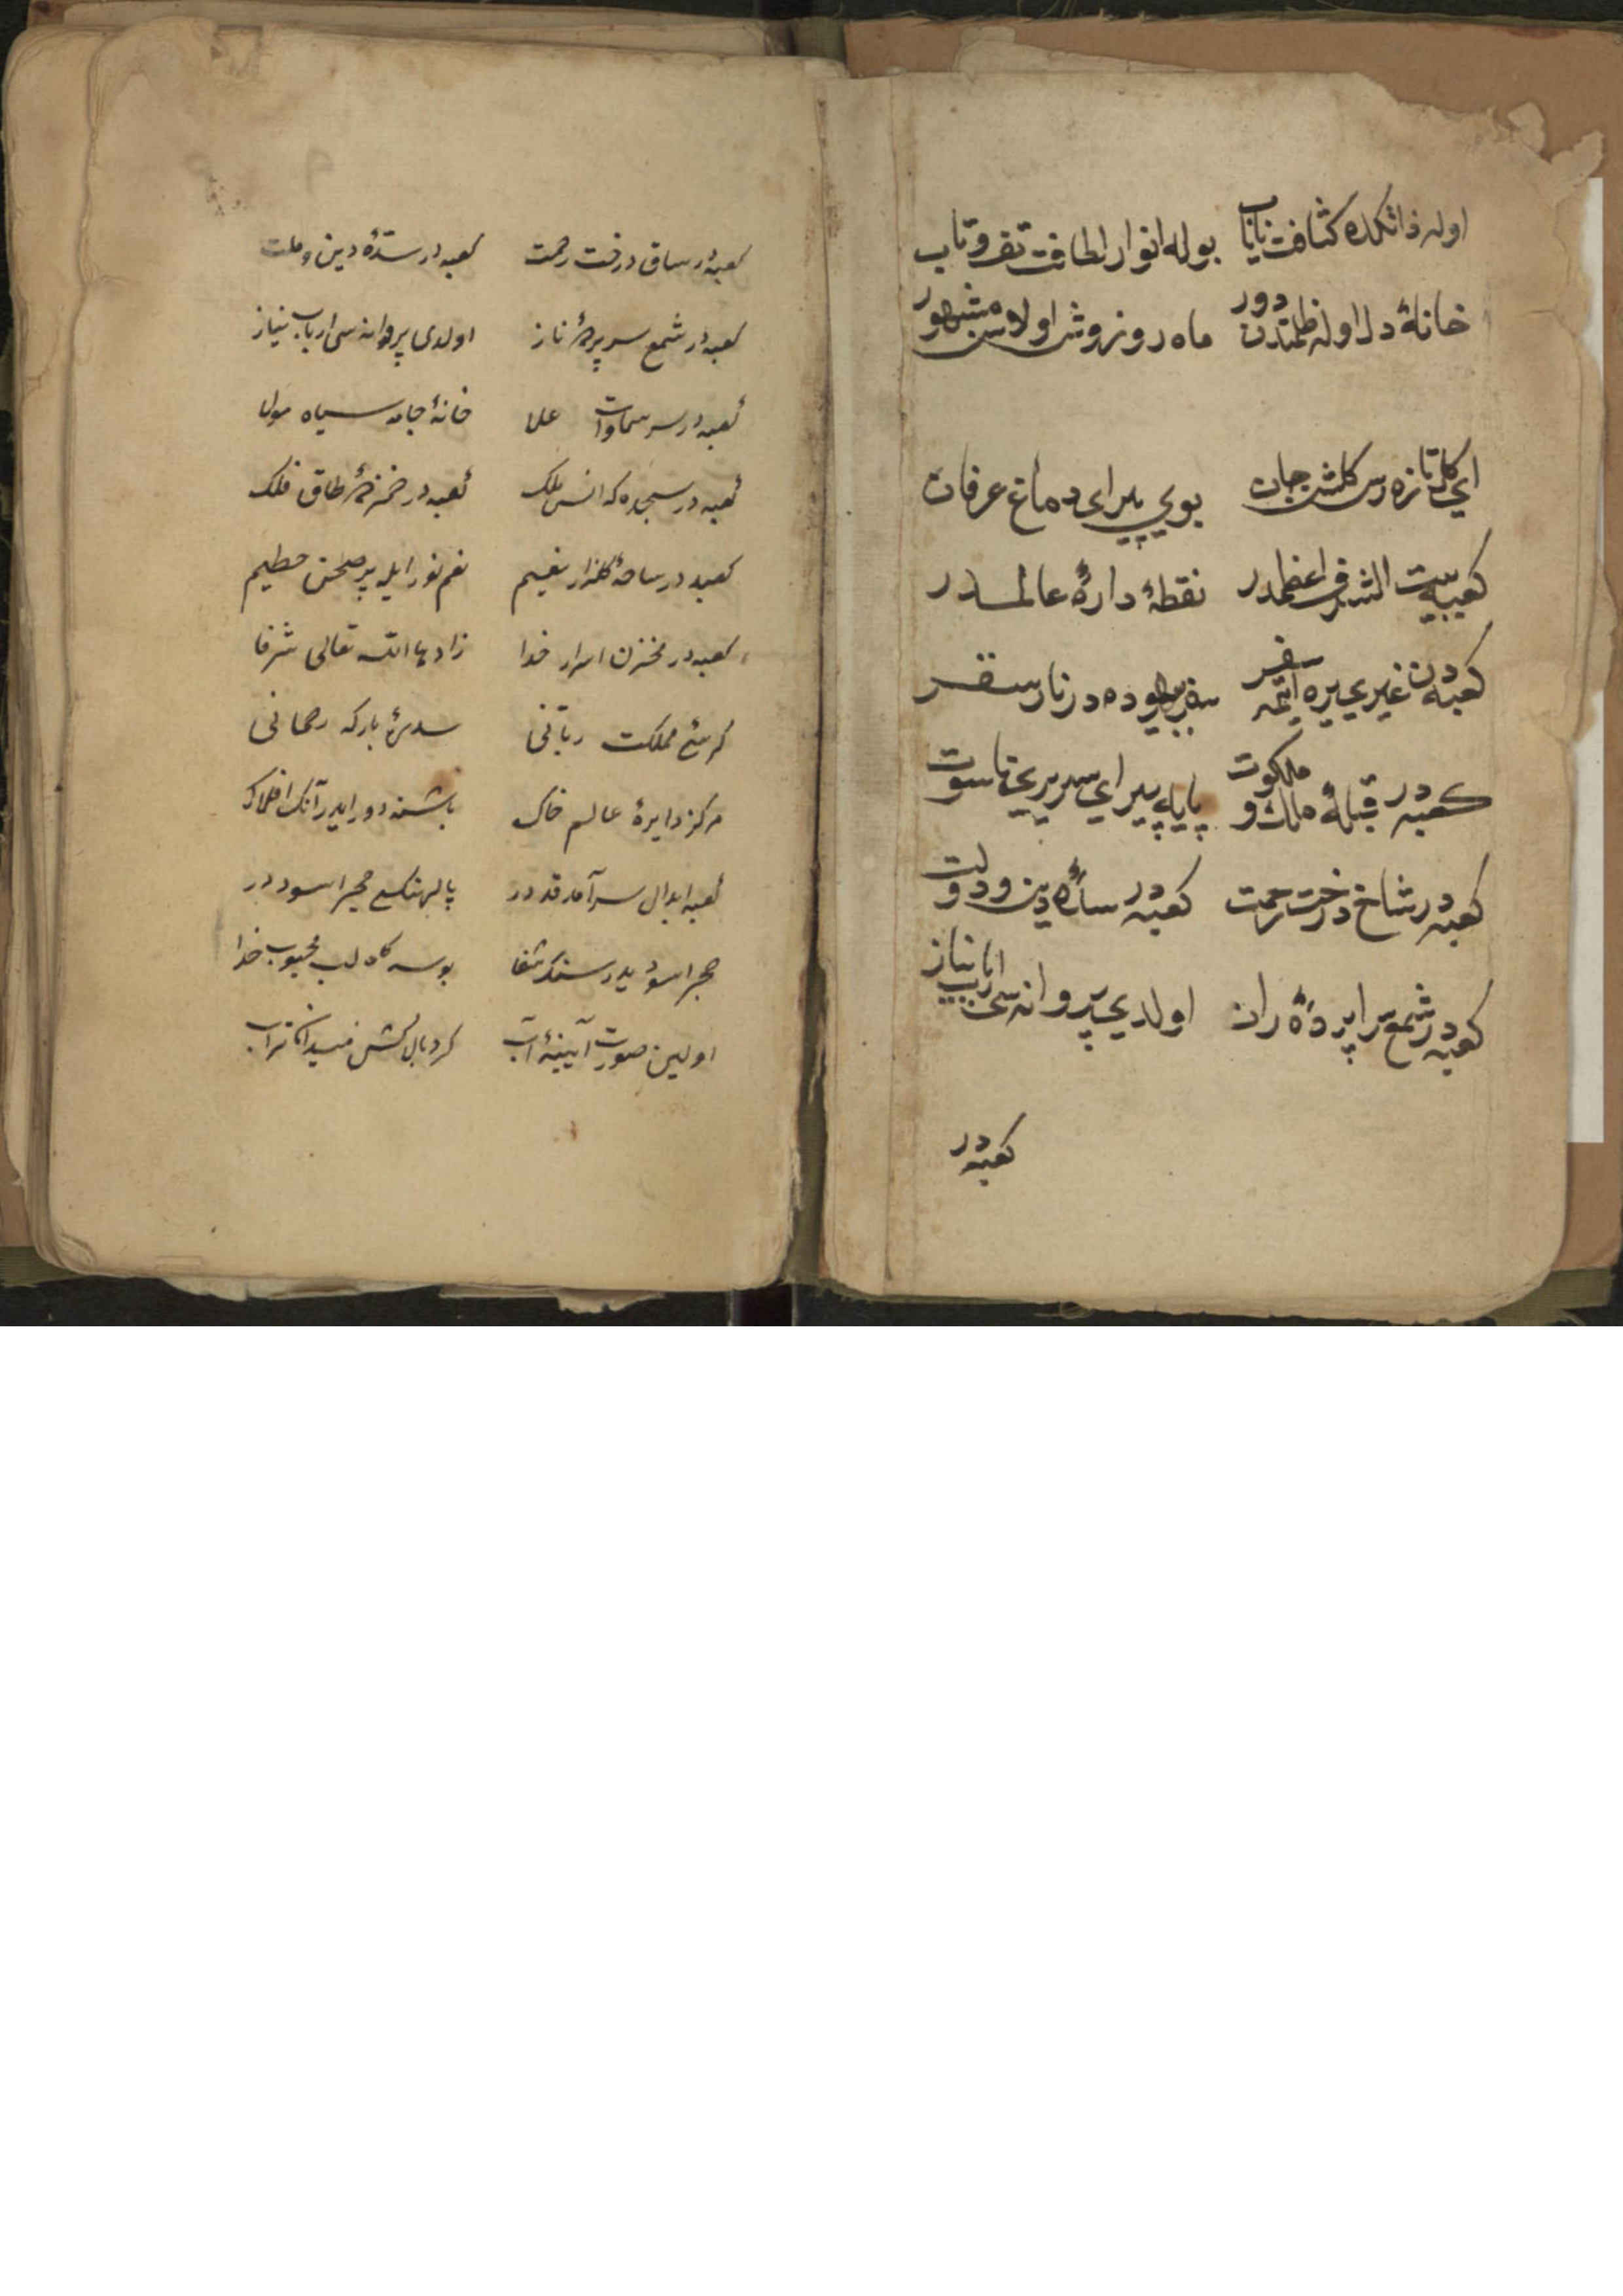 اوله ذاتكده كثافت ناياب بوله انوار لطافت تف وتاب
خانۀ دل اوله ظلمتدن دور ماه روزوش اولاسن مشهور
اي كل تازه رس كلشن جان بوي پيراى دماغ عرفان
كعبه بيت الشرف اعظمدر نقطۀ دارۀ عالمدر
كعبه دن غيرى يره ايتمه سفر سفر بيهوده در نار سقر
كعبه در قبلۀ ملك و ملكوت پايه پيراي سرير ناسوت
كعبه در شاخ درخت رحمت كعبه در سدۀ دين ودولت
كعبه در شمع سراپردۀ راز اولدي پروانه سى ارباب نياز
كعبه در
كعبه در ساق درخت رحمت كعبه در سدۀ دين وملت
كعبه در شمع سرپردۀ ناز اولدى پروانه سى ارباب نياز
كعبه در سر سماوات علا خانۀ جامه سياه مولا
كعبه در سجده كه انس ملك كعبه در طاق فلك
كعبه در ساحۀ كلزار نعيم نور ايله پر صحن حطيم
كعبه در مخزن اسرار خدا زادها الله تعالى شرفا
كرسئ مملكت ربانى سدۀ باركه رحمانى
مركز دايرۀ عالم خاك باشنه دور ايدر آنك افلاك
كعبه ابدال سرآمد قددر پالهنكى حجر اسوددر
حجر اسود يدر سنك شفا بوسه كاه لب محبوب خدا
اولين صورت آيينۀ آب كرد بالش ميدان تراب